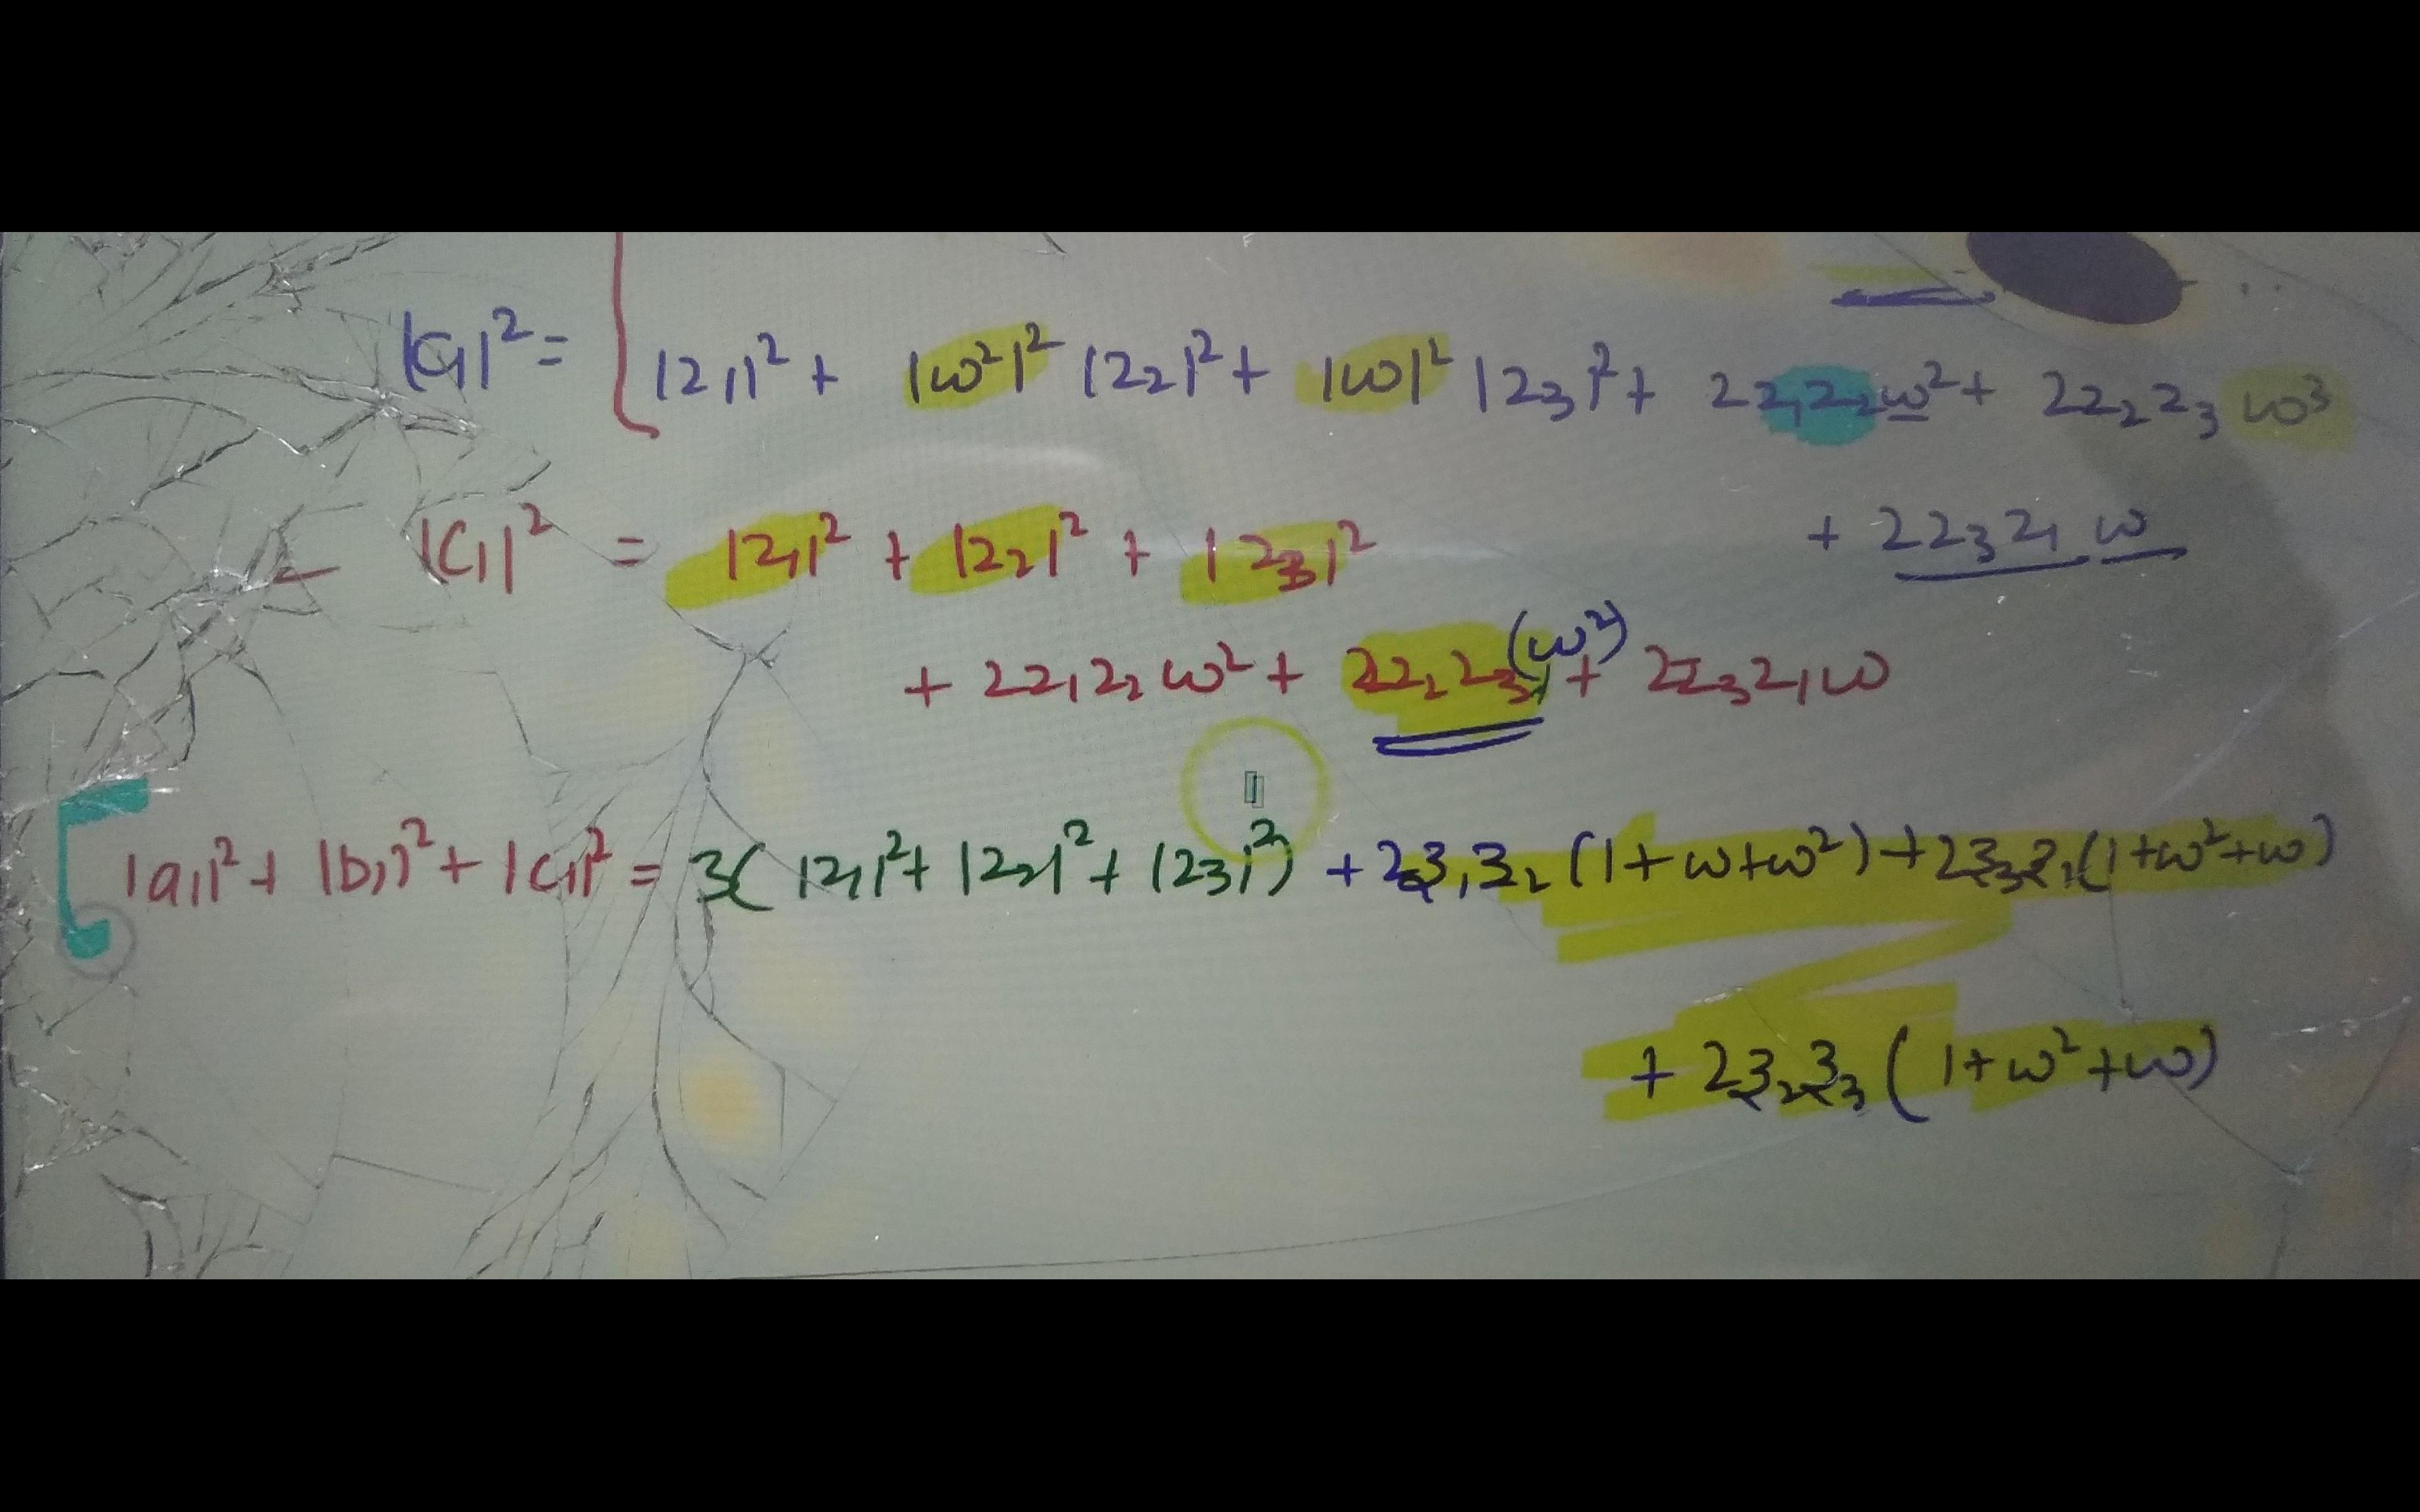 |C₁|² = |z₁|² + |ω²|² |z₂|² + |ω|² |z₃|² + 2z₁z₂ω² + 2z₂z₃ ω³
+ 2z₃z₁ ω
|C₁|² = |z₁|² + |z₂|² + |z₃|²
+ 2z₁z₂ω² + 2z₂z₃(ω²) + 2z₃z₁ω
|a₁|² + |b₁|² + |c₁|² = 3(|z₁|² + |z₂|² + |z₃|²) + 2z₁z₂(1+ω+ω²) + 2z₃z₁(1+ω²+ω)
+ 2z₂z₃(1+ω²+ω)